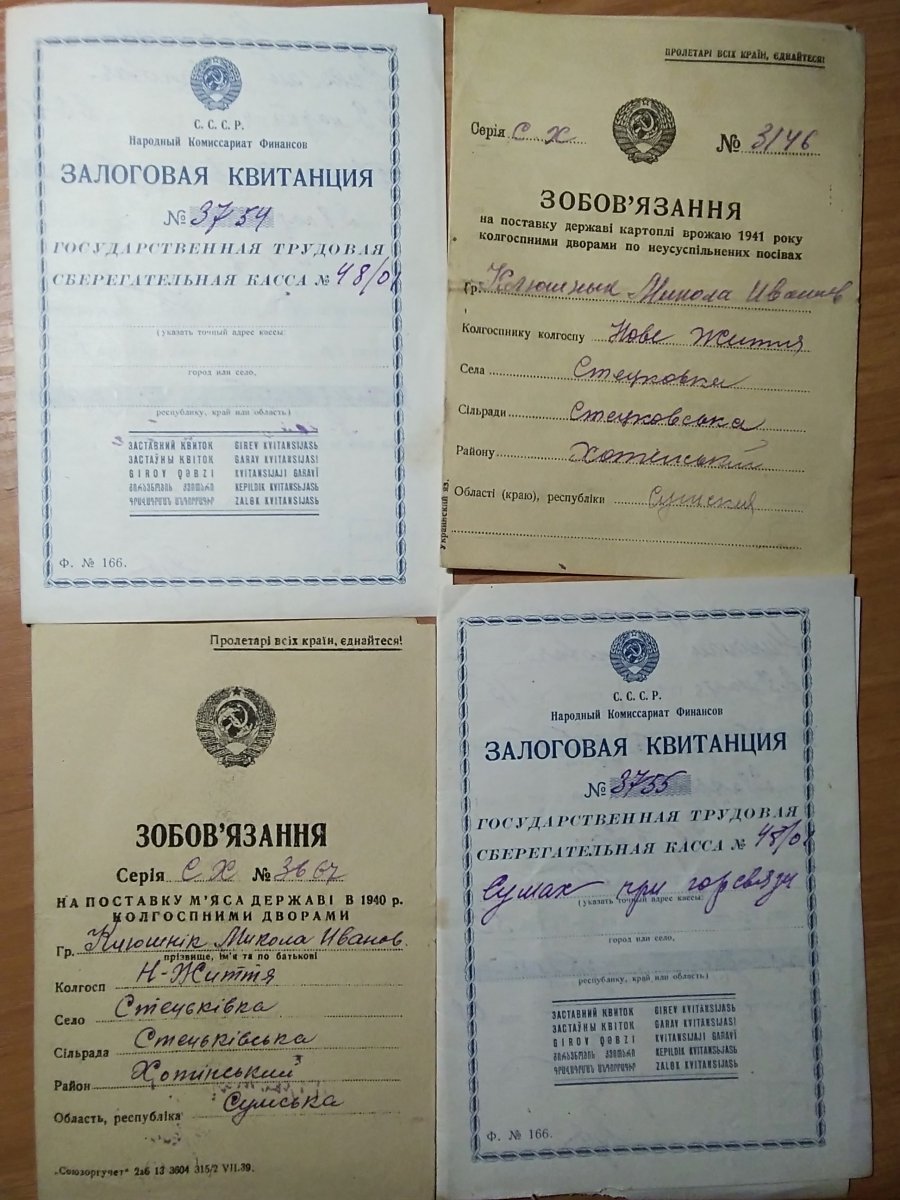 С. С. С. Р.
Народный Комиссариат Финансов
ЗАЛОГОВАЯ КВИТАНЦИЯ
№ 3754
ГОСУДАРСТВЕННАЯ ТРУДОВАЯ
СБЕРЕГАТЕЛЬНАЯ КАССА № 48/0
(указать точный адрес кассы
город или село,
республику, край или область)
ЗАСТАВНИЙ КВИТОК GIREV KVITANSIJASЬ
ЗАСТАЎНЫ КВІТОК GARAV KVITANSIJASI
GIROV QƏBZI KVITANSIJAJI GARAVĪ
KEPILDIK KVITANSЬJASЬ
ZALOK KVITANSIJASЬ
Ф. № 166.
ПРОЛЕТАРІ ВСІХ КРАЇН, ЄДНАЙТЕСЯ!
Серія С Х № 3146
ЗОБОВ'ЯЗАННЯ
на поставку державі картоплі врожаю 1941 року
колгоспними дворами по неусуспільнених посівах
Гр. Клюшнык Микола Иванов
Колгоспнику колгоспу Нове Життя
Села Стецковка
Сільради Стецковська
Району Хотенський
Області (краю), республіки Сумская
Украинский яз.
Пролетарі всіх країн, єднайтеся!
ЗОБОВ'ЯЗАННЯ
Серія С Х № 3667
НА ПОСТАВКУ М'ЯСА ДЕРЖАВІ В 1940 р.
КОЛГОСПНИМИ ДВОРАМИ
Гр. Клюшнік Микола Иванов
прізвище, ім'я та по батькові
Колгосп Н-Життя
Село Стецьківка
Сільрада Стецьківська
Район Хотінський
Область, республіка Сумська
„Союзоргучет" 2аб 13 3604 315/2 VII.39.
С. С. С. Р.
Народный Комиссариат Финансов
ЗАЛОГОВАЯ КВИТАНЦИЯ
№ 3755
ГОСУДАРСТВЕННАЯ ТРУДОВАЯ
СБЕРЕГАТЕЛЬНАЯ КАССА № 48/0
Сумах при горсвязи
(указать точный адрес кассы
город или село,
республику, край или область)
ЗАСТАВНИЙ КВИТОК GIREV KVITANSIJASЬ
ЗАСТАЎНЫ КВІТОК GARAV KVITANSIJASI
GIROV QƏBZI KVITANSIJAJI GARAVĪ
KEPILDIK KVITANSЬJASЬ
ZALOK KVITANSIJASЬ
Ф. № 166.